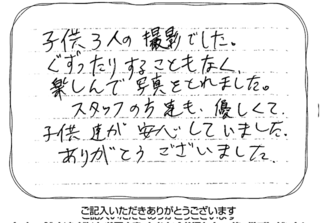 子供3人の撮影でした。
ぐずったりすることもなく、
楽しんで写真をとれました。
スタッフの方達も、優しくて、
子供達が安心していました。
ありがとうございました。
ご記入いただきありがとうございます